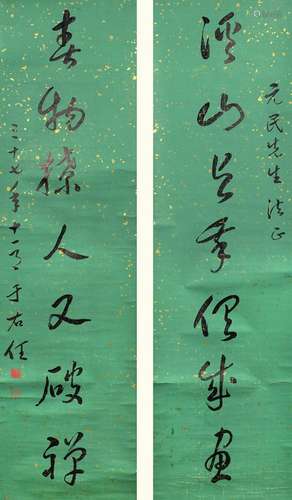 元民先生法正
溪山成畫
春物撩人又破禪
三十七年十一月于右任